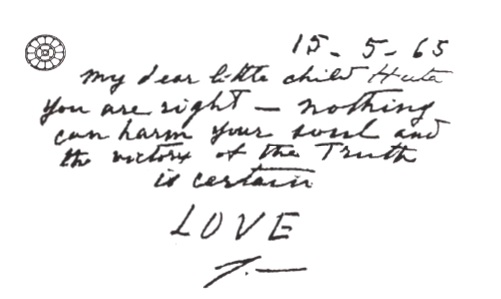 15 - 5 - 65
My dear little child Huta
You are right — nothing
can harm your soul and
the victory of the Truth
is certain
LOVE